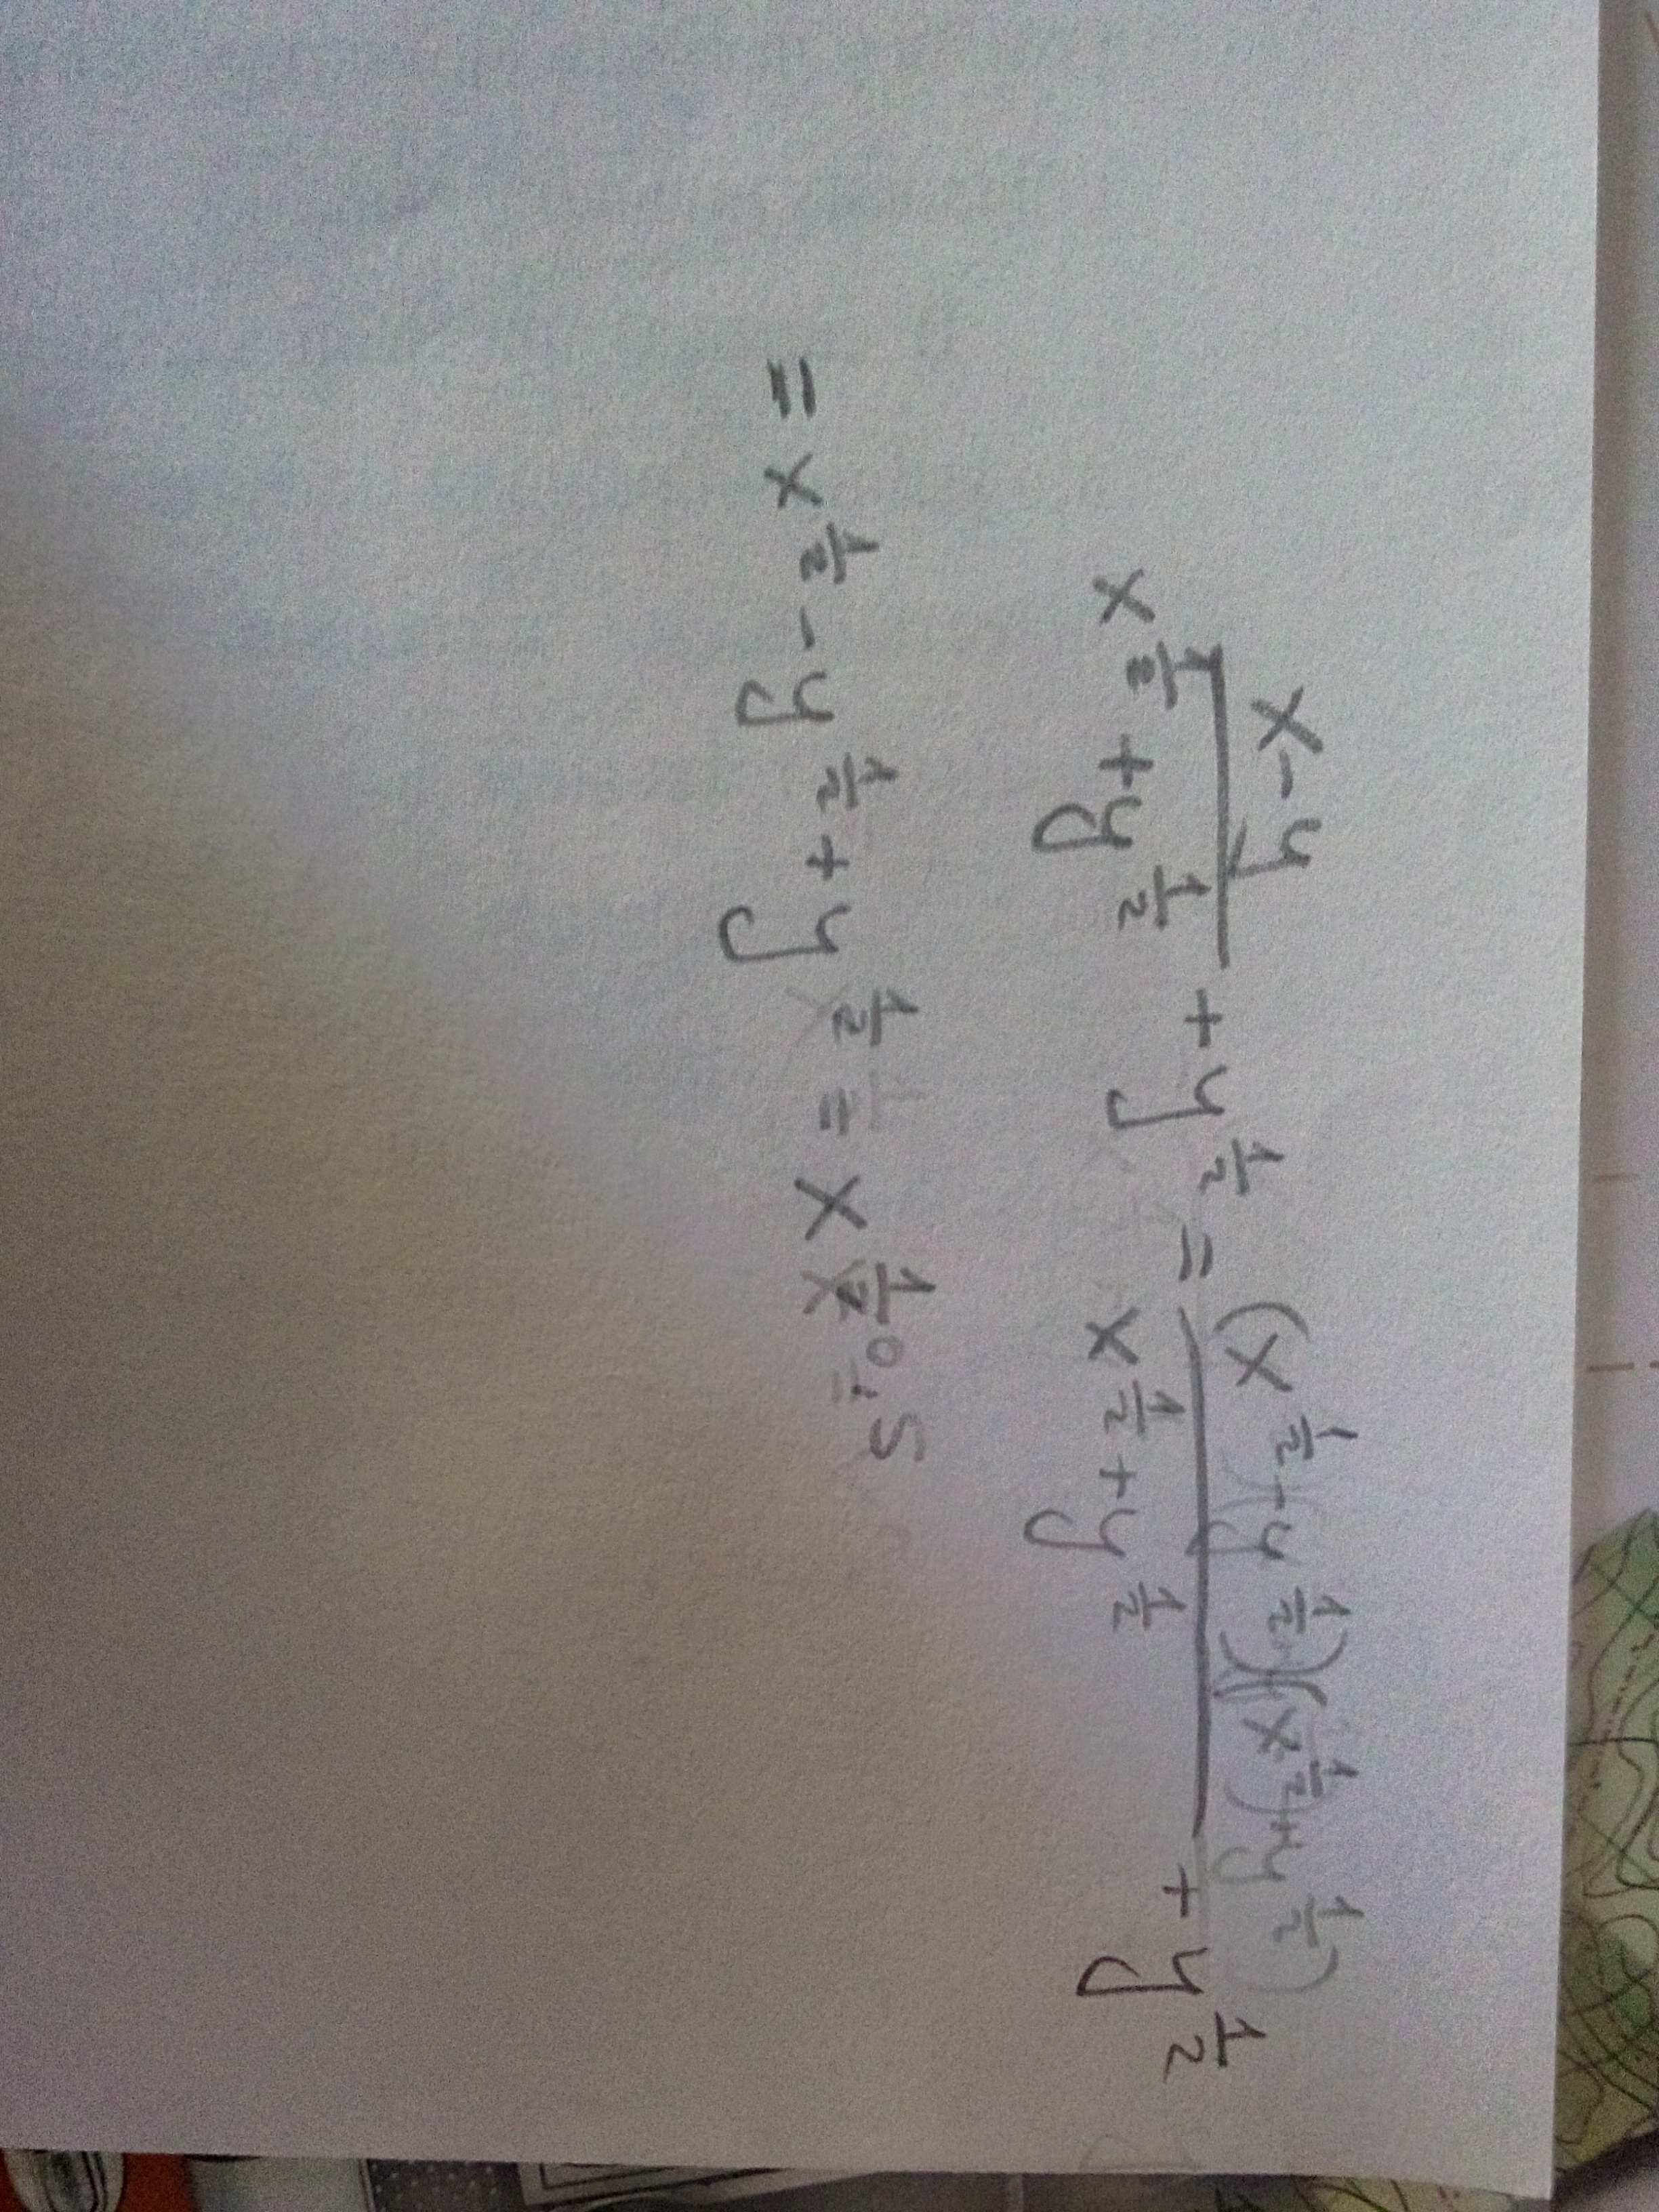 (x - y)/(x^(1/2) + y^(1/2)) + y^(1/2) = ((x^(1/2) - y^(1/2))(x^(1/2) + y^(1/2)))/(x^(1/2) + y^(1/2)) + y^(1/2)
= x^(1/2) - y^(1/2) + y^(1/2) = x^(1/2)